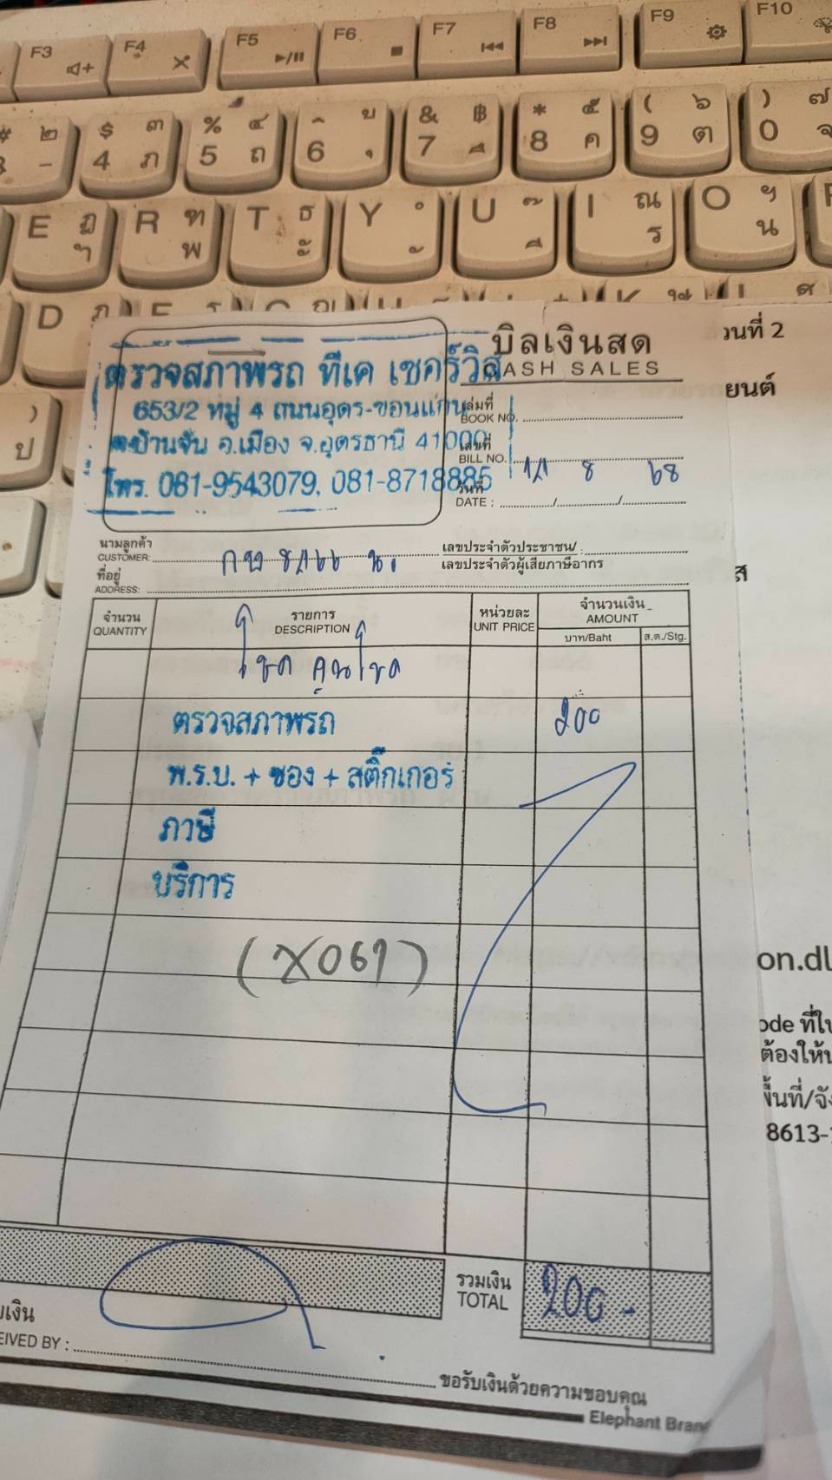 F3 F4 F5 F6 F7 F8 F9 F10
$ ๓ 4 ภ % ๔ 5 ถ 6 & ฿ 7 * ๕ 8 ค ( ๖ 9 ต ) ๗ 0 จ
E ฎ ำ R ฑ พ T ธ ะ Y U I ณ ร O ฯ น
D
ป
ตรวจสภาพรถ ทีเค เซอร์วิส
653/2 หมู่ 4 ถนนอุดร-ขอนแก่น
ต.บ้านจั่น อ.เมือง จ.อุดรธานี 41000
โทร. 081-9543079, 081-8718885
บิลเงินสด
CASH SALES
เล่มที่
BOOK NO.
เลขที่
BILL NO.
วันที่
DATE : / / 8 68
นามลูกค้า
CUSTOMER:
ที่อยู่
ADDRESS:
เลขประจำตัวประชาชน/
เลขประจำตัวผู้เสียภาษีอากร
จำนวน
QUANTITY
รายการ
DESCRIPTION
หน่วยละ
UNIT PRICE
จำนวนเงิน
AMOUNT
บาท/Baht
ส.ต./Stg.
ตรวจสภาพรถ 200
พ.ร.บ. + ซอง + สติ๊กเกอร์
ภาษี
บริการ
รวมเงิน
TOTAL
200 -
EIVED BY :
ขอรับเงินด้วยความขอบคุณ
Elephant Bran
วนที่ 2
ยนต์
ส
on.dl
ode ที่ใบ
ต้องให้
8613-